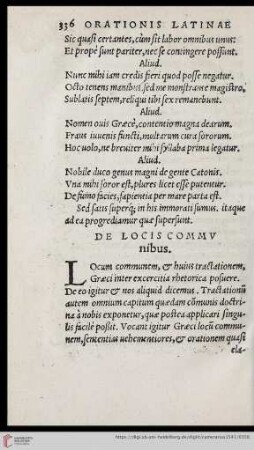 336 ORATIONIS LATINAE
Sic quasi certantes, cùm sit labor omnibus unus:
Et propè sunt pariter, nec se contingere possunt.
Aliud.
Nunc mihi iam credis fieri quod posse negatur.
Octo tenens manibus, sed me monstrante magistro,
Sublatis septem, reliqui tibi sex remanebunt.
Aliud.
Nomen ouis Græcè, contentio magna dearum.
Fraus iuuenis functi, multarum cura sororum.
Hoc uolo, ne breuiter mihi syllaba prima legatur.
Aliud.
Nobile duco genus magni de gente Catonis.
Vna mihi soror est, plures licet esse putentur.
De fumo facies, sapientia per mare parta est.
Sed satis superq; in his immorati sumus. itaque
ad ea progrediamur quæ supersunt.
DE LOCIS COMMV
nibus.
LOcum communem, & huius tractationem,
Græci inter exercitia rhetorica posuere.
De eo igitur & nos aliquid dicemus. Tractationū
autem omnium capitum quædam cōmunis doctri
na à nobis exponetur, quæ postea applicari singu-
lis facilè poßit. Vocant igitur Græci locū commu-
nem, sententias uehementiores, & orationem quasi
ela-